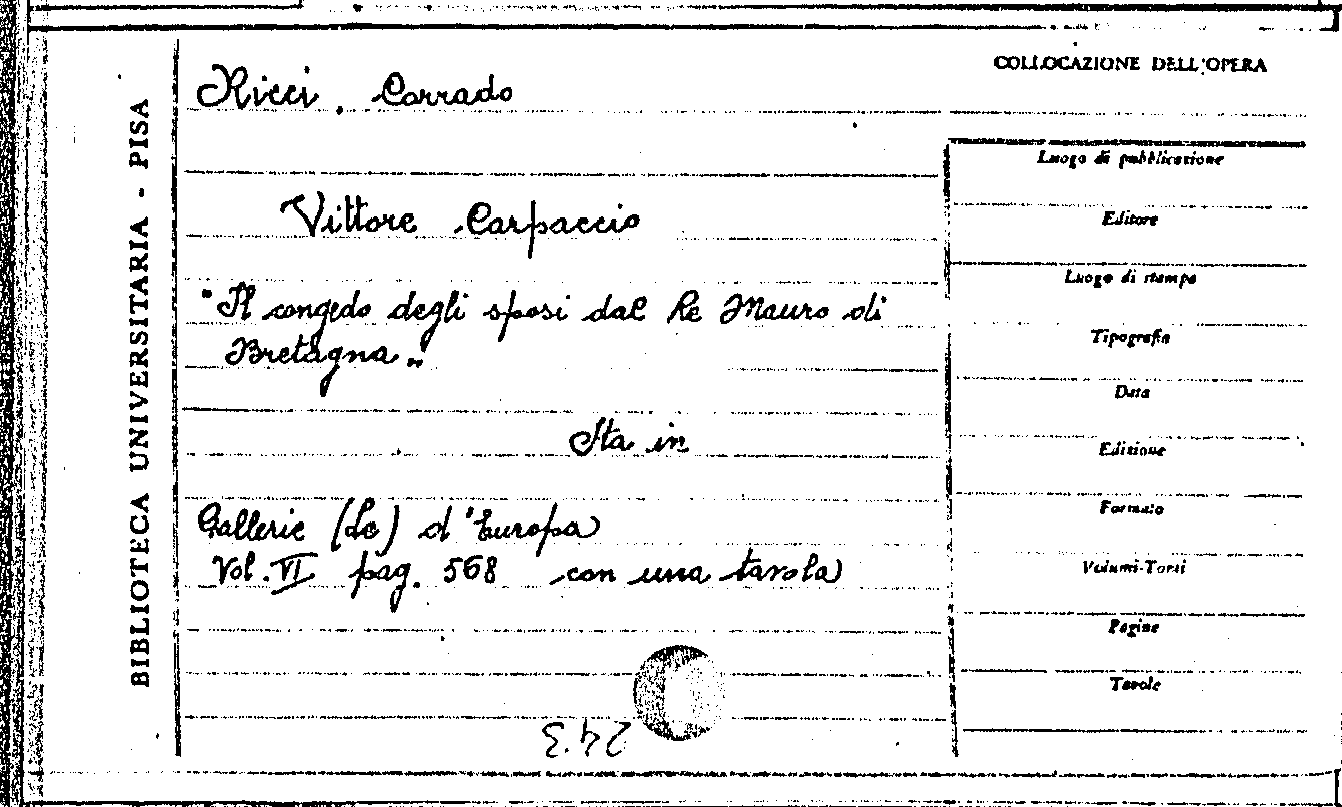 BIBLIOTECA UNIVERSITARIA - PISA
COLLOCAZIONE DELL'OPERA
Ricci, Corrado
Vittore Carpaccio
"Il congedo degli sposi dal Re Mauro di
Bretagna"
Sta in
Gallerie (Le) d'Europa
Vol. VI pag. 568 con una tavola
243
Luogo di pubblicazione
Editore
Luogo di stampa
Tipografia
Data
Edizione
Formato
Volumi-Tomi
Pagine
Tavole